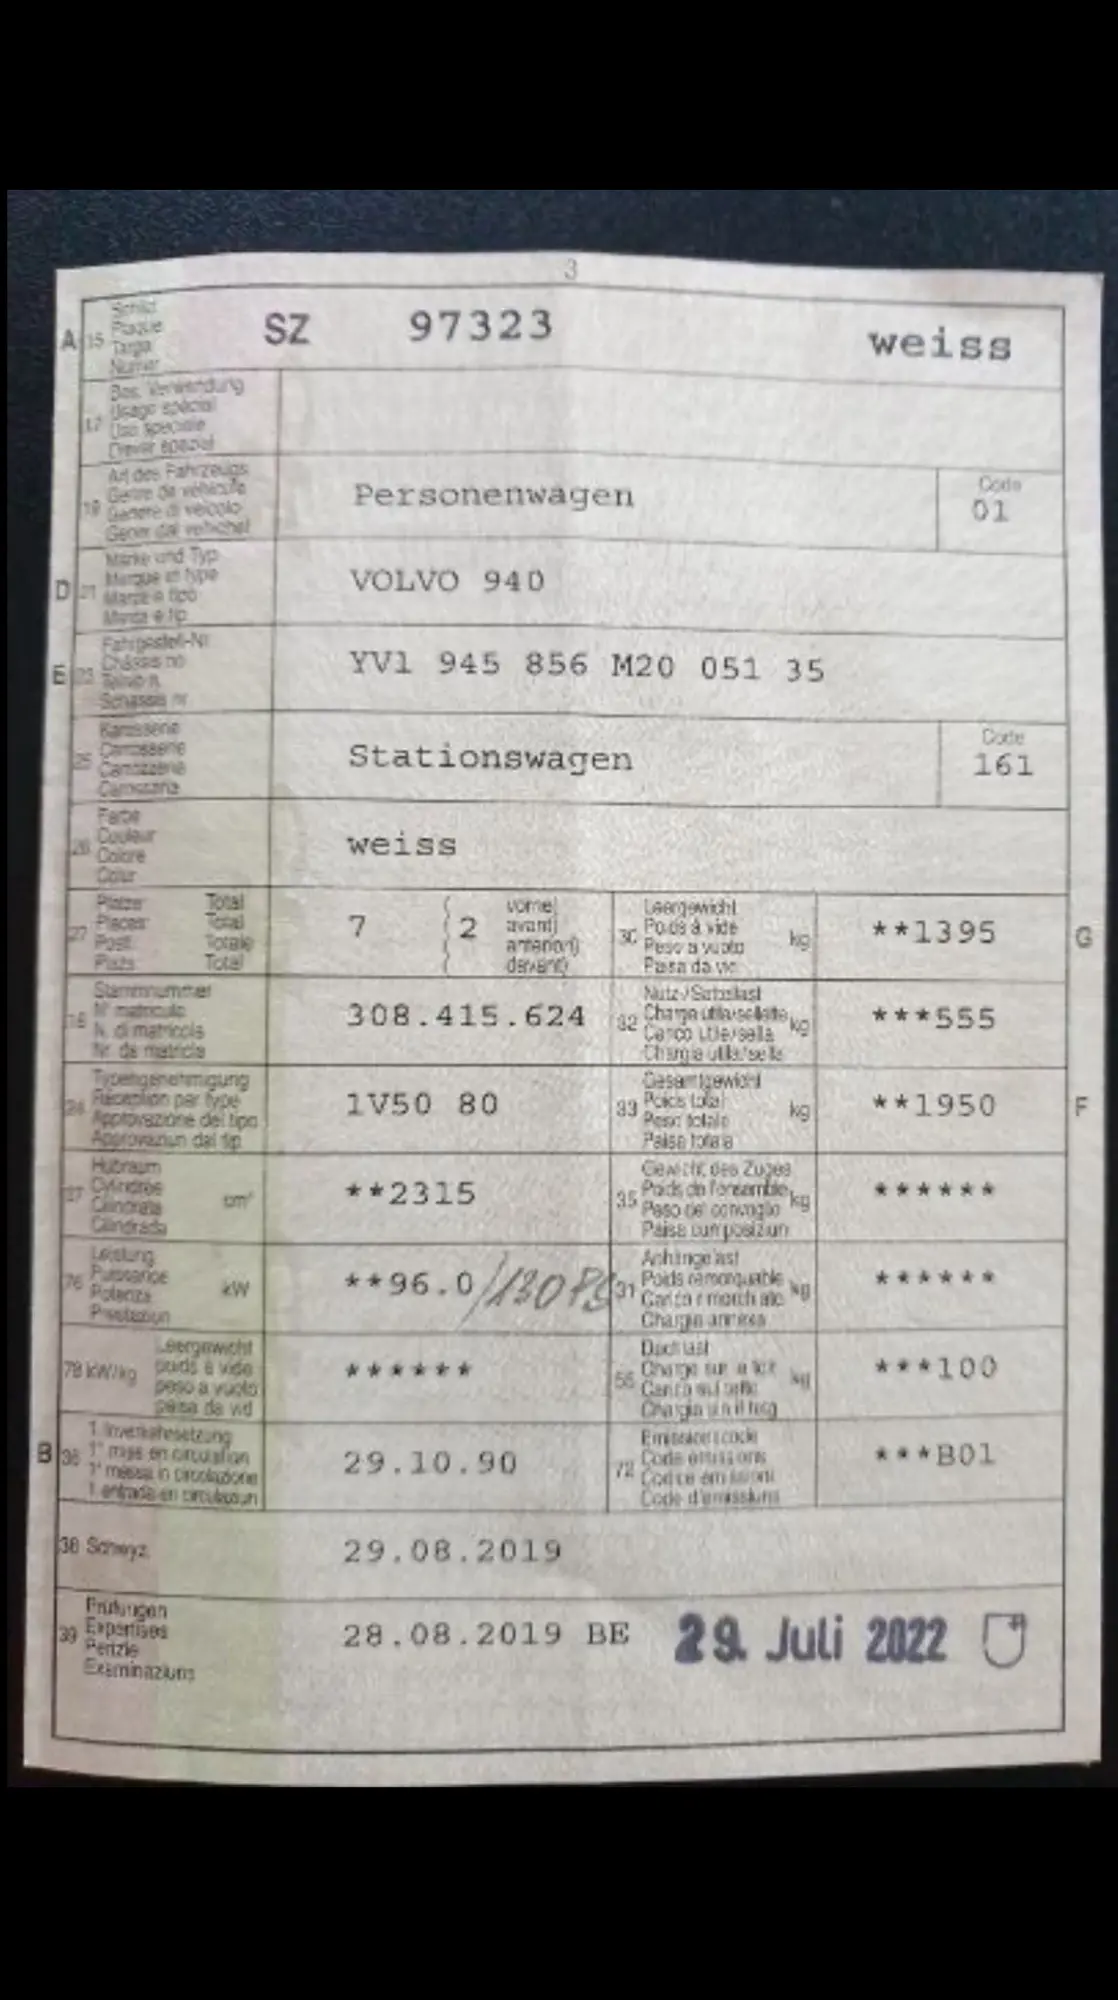 3
A 15 Schild
Plaque
Targa
Numer
SZ 97323 weiss
17 Bes. Verwendung
Usage spécial
Uso speciale
Diever spezial
19 Art des Fahrzeugs
Genre de véhicule
Genere di veicolo
Gener dal vehichel
Personenwagen
Code
01
D 21 Marke und Typ
Marque et type
Marca e tipo
Marca e tip
VOLVO 940
E 23 Fahrgestell-Nr
Châssis no
Telaio n.
Schassis nr
YV1 945 856 M20 051 35
25 Karosserie
Carrosserie
Carrozzeria
Carossaria
Stationswagen
Code
161
26 Farbe
Couleur
Colore
Colur
weiss
27 Plätze Total
Places Total
Posti Totale
Plazs Total
7 ( 2 vorne)
avant)
anteriori)
davant)
30 Leergewicht
Poids à vide
Peso a vuoto kg
Paisa da vid
**1395
G
18 Stammnummer
N° matricule
N. di matricola
Nr. da matricla
308.415.624
32 Nutz-/Sattellast
Charge utile/sellette
Carico utile/sella kg
Chargia utila/sella
***555
24 Typengenehmigung
Réception par type
Approvazione del tipo
Approvaziun dal tip
1V50 80
33 Gesamtgewicht
Poids total
Peso totale kg
Paisa totala
**1950
F
37 Hubraum
Cylindrée
Cilindrata cm³
Cilindrada
**2315
35 Gewicht des Zuges
Poids de l'ensemble
Peso del convoglio kg
Paisa cumposiziun
******
76 Leistung
Puissance
Potenza kW
Prestaziun
**96.0/130 PS
31 Anhängelast
Poids remorquable
Carico rimorchiato kg
Chargia annexa
******
78 kW/kg Leergewicht
poids à vide
peso a vuoto
paisa da vid
******
55 Dachlast
Charge sur le toit
Carico sul tetto kg
Chargia sin il tetg
***100
B 36 1. Inverkehrsetzung
1re mise en circulation
1a messa in circolazione
1. entrada en circulaziun
29.10.90
72 Emissionscode
Code émissions
Codice emissioni
Code d'emissiuns
***B01
38 Schwyz
29.08.2019
39 Prüfungen
Expertises
Perizie
Examinaziuns
28.08.2019 BE 29. Juli 2022